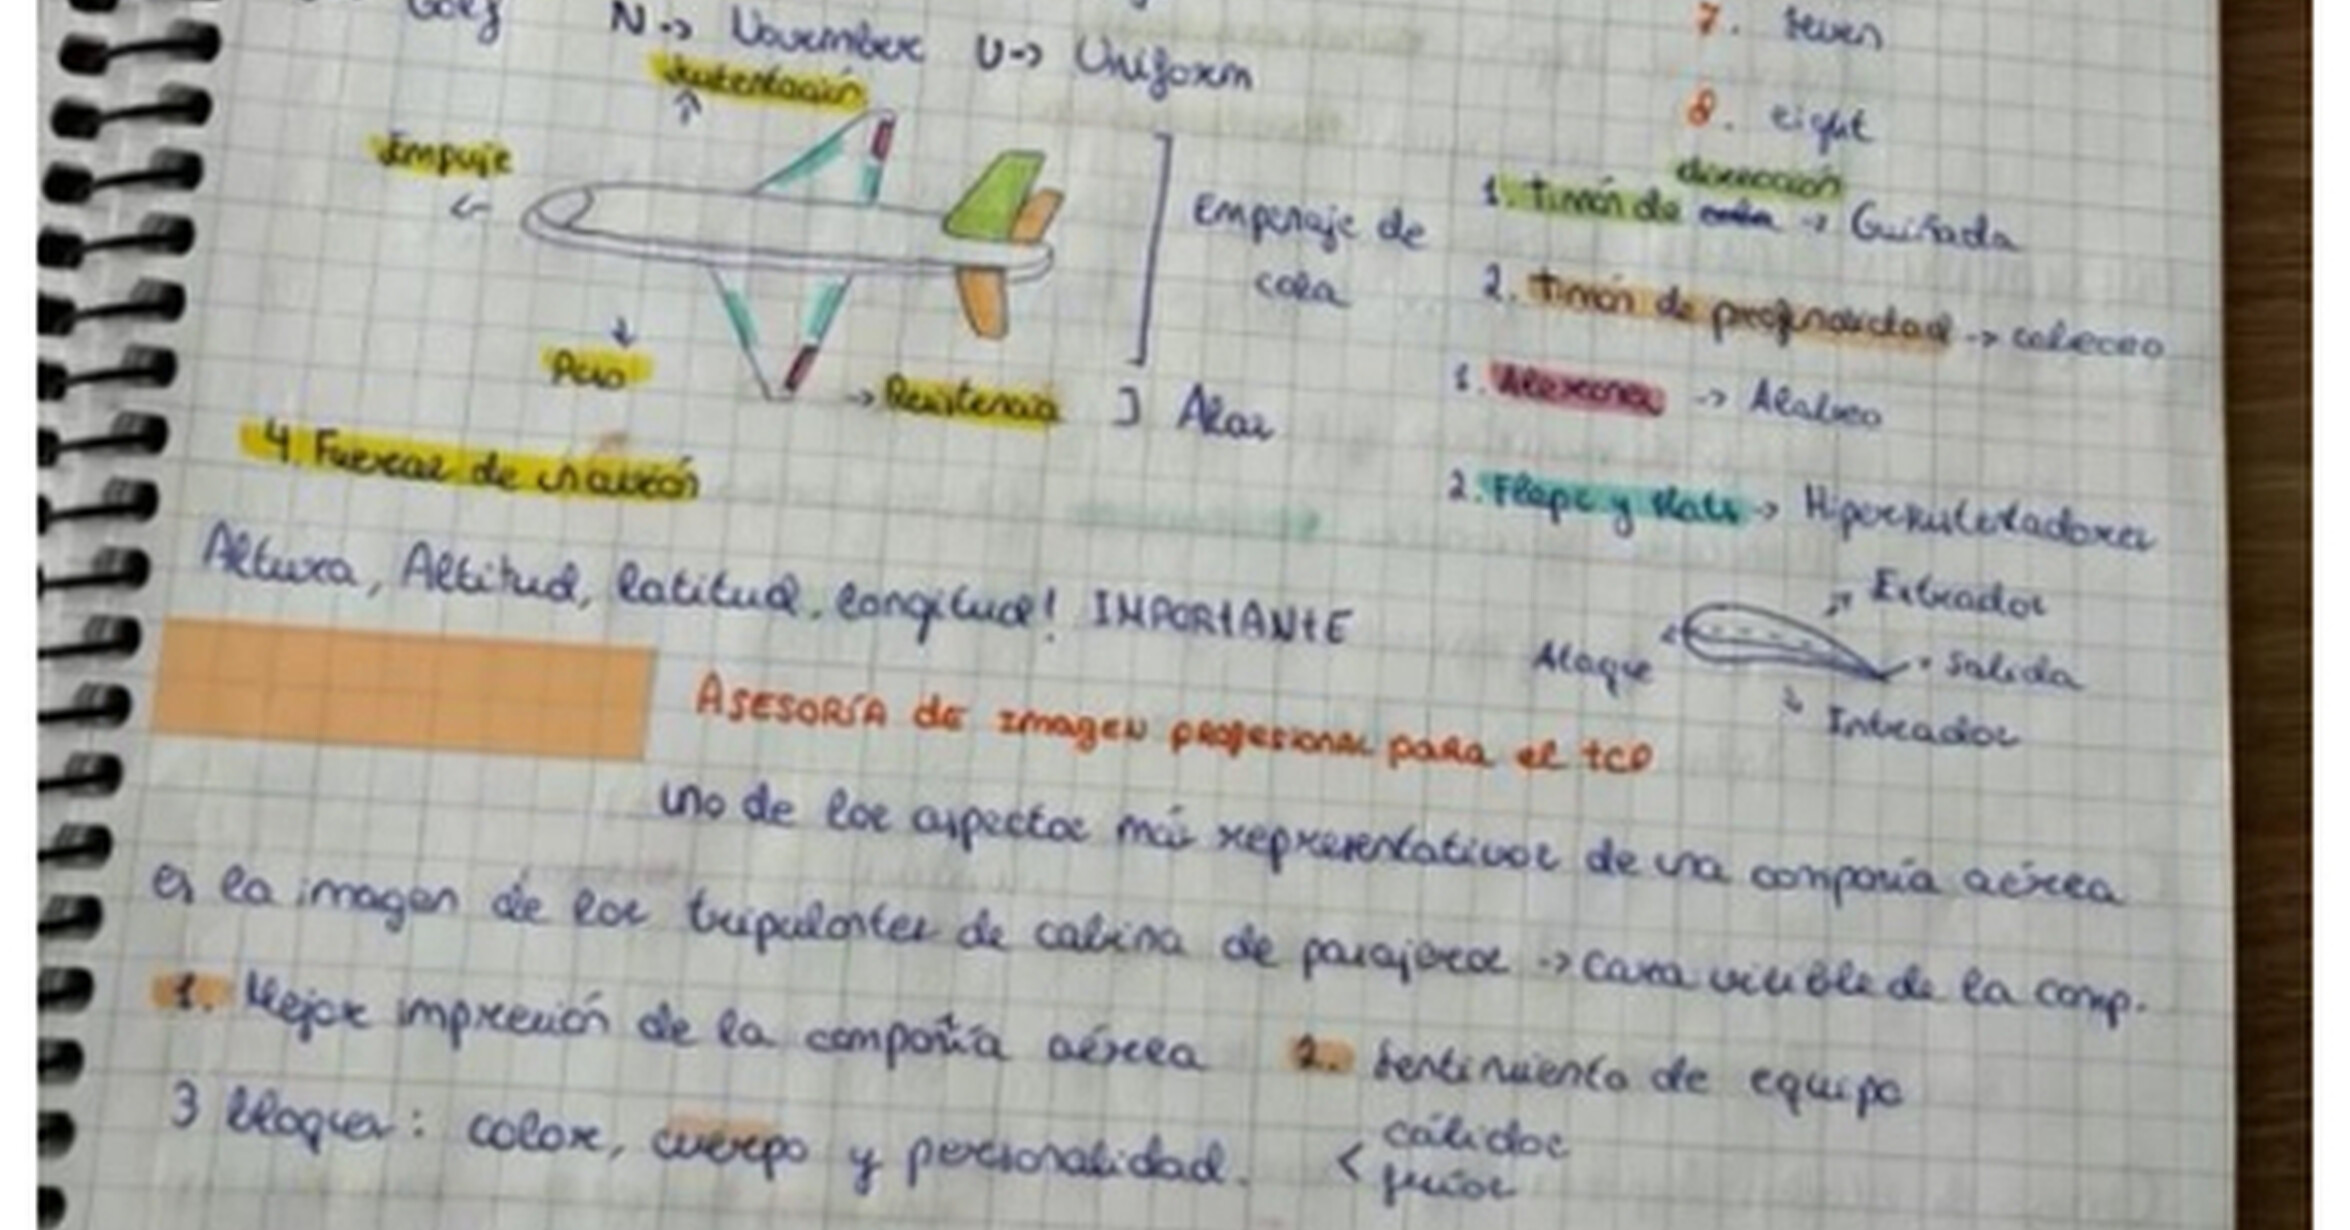 Golf N -> November U -> Uniform
7. seven
8. eight
Sustentación
Empuje
Peso
-> Resistencia
4. Fuerzas de
Empenaje de
cola
] Alas
dirección
1. Timón de -> Guiñada
2. Timón de profundidad -> cabeceo
1. Alerones -> Alabeo
2. Flaps y slats -> Hipersustentadores
Extrador
Ataque
Salida
Intrador
Altura, Altitud, latitud, longitud! IMPORTANTE
Asesoría de imagen profesional para el TCP
uno de los aspectos más representativos de una compañía aérea
es la imagen de los tripulantes de cabina de pasajeros -> cara visible de la comp.
1. Mejor impresión de la compañía aérea 2. Sentimiento de equipo
3 bloques: color, cuerpo y personalidad. < cálidos
fríos